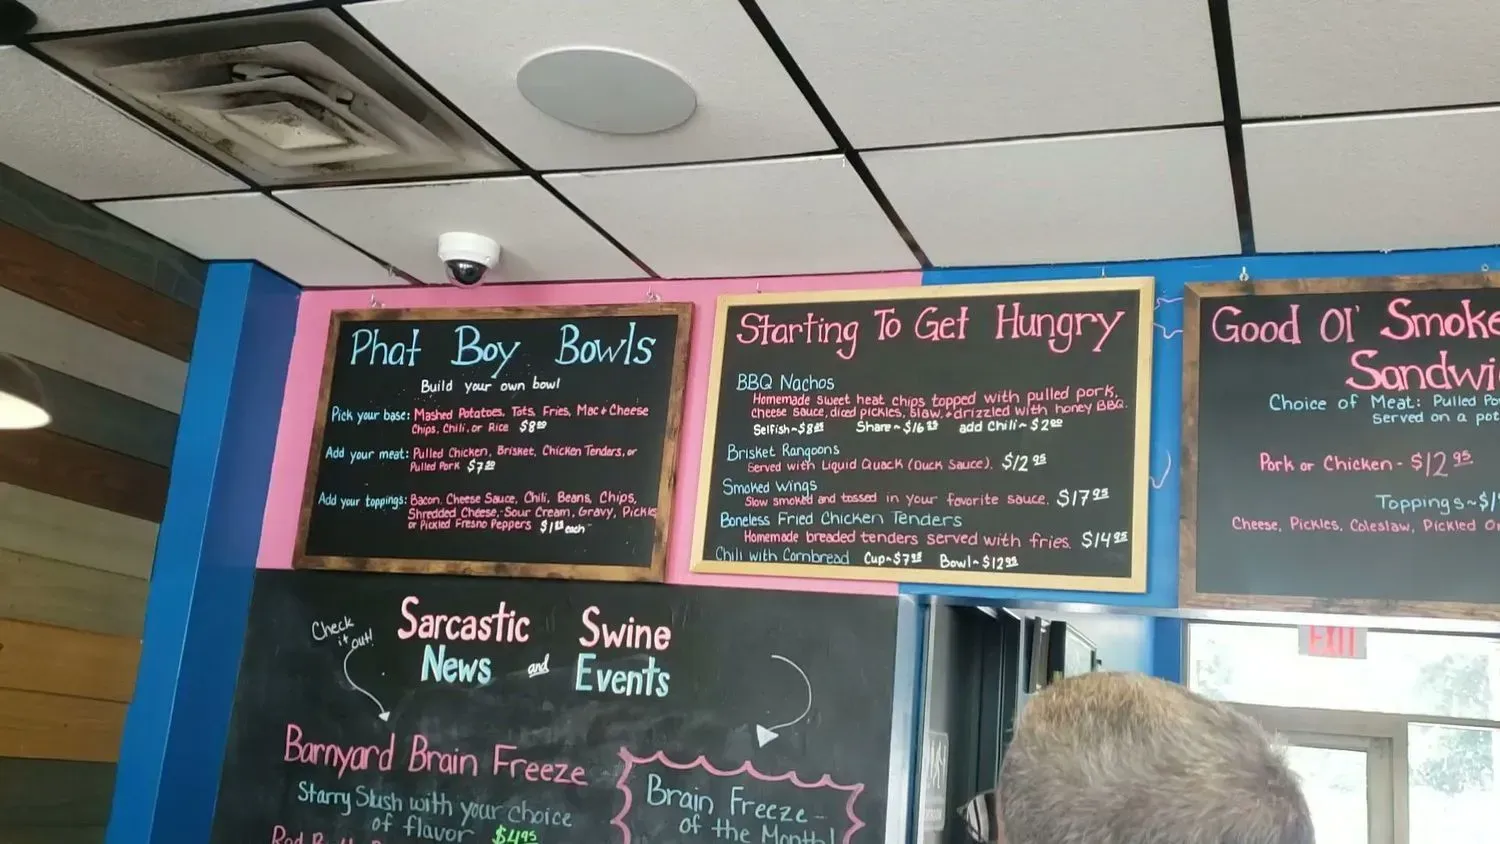 Phat Boy Bowls
Build your own bowl
Pick your base: Mashed Potatoes, Tots, Fries, Mac + Cheese
Chips, Chili, or Rice
Add your meat: Pulled Chicken, Brisket, Chicken Tenders, or
Pulled Pork
Add your toppings: Bacon, Cheese Sauce, Chili, Beans, Chips,
Shredded Cheese, Sour Cream, Gravy, Pickles
or Pickled Fresno Peppers each
Starting To Get Hungry
BBQ Nachos
Homemade sweet heat chips topped with pulled pork,
cheese sauce, diced pickles, slaw, + drizzled with honey BBQ.
Selfish~ Share~ add Chili~
Brisket Rangoons
Served with Liquid Quack (Duck Sauce). $12 95
Smoked Wings
Slow smoked and tossed in your favorite sauce. $17 95
Boneless Fried Chicken Tenders
Homemade breaded tenders served with fries. $14 95
Chili with Cornbread Cup~$7 95 Bowl~$12 95
Good Ol' Smoke
Sandwi
Choice of Meat: Pulled Po
Served on a pot
Pork or Chicken - $12 95
Toppings~$1
Cheese, Pickles, Coleslaw, Pickled O
Check
it out!
Sarcastic Swine
News and Events
Barnyard Brain Freeze
Starry Slush with your choice
of flavor $4 95
Brain Freeze -
of the Month!
EXIT